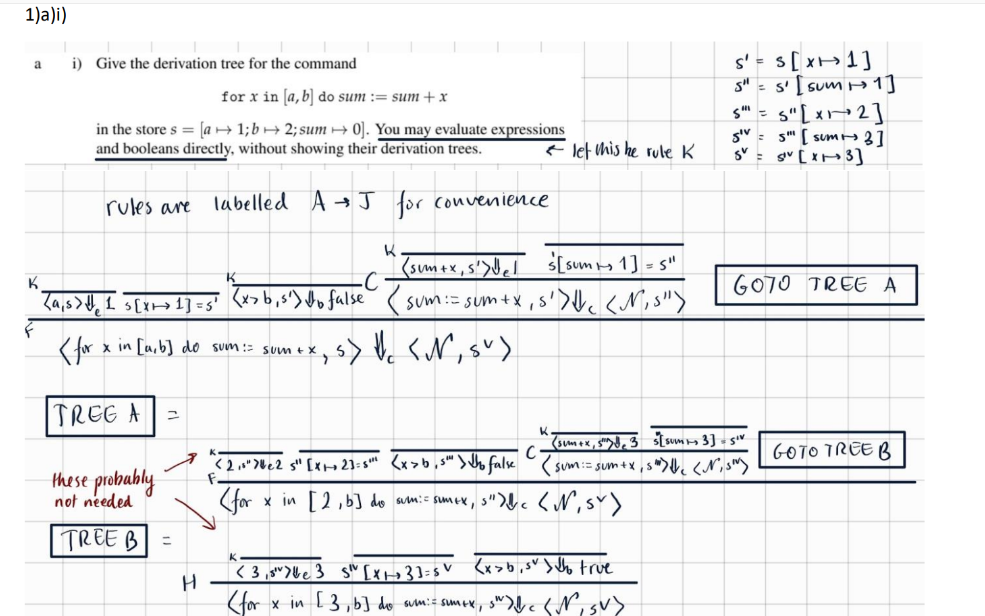 1)a)i)
a i) Give the derivation tree for the command
for x in [a,b] do sum := sum + x
in the store s = [a ↦ 1; b ↦ 2; sum ↦ 0]. You may evaluate expressions
and booleans directly, without showing their derivation trees.
← let this be rule K
s' = s[x↦1]
s'' = s'[sum↦1]
s''' = s''[x↦2]
sⁱᵛ = s'''[sum↦3]
sᵛ = sⁱᵛ[x↦3]
rules are labelled A → J for convenience
K <sum+x, s'>⇓e 1 s'[sum↦1] = s''
K <a,s>⇓e 1 s[x↦1]=s' K <x>b,s'>⇓b false C <sum:= sum+x, s'>⇓c <N, s''> GOTO TREE A
F
<for x in [a,b] do sum:= sum+x, s> ⇓c <N, sᵛ>
TREE A =
K <sum+x, s'''>⇓e 3 s'''[sum↦3] = sⁱᵛ
K <2,s''>⇓e 2 s''[x↦2]=s''' <x>b,s'''>⇓b false C <sum:=sum+x, s'''>⇓c <N,sⁱᵛ> GOTO TREE B
F
<for x in [2,b] do sum:= sum+x, s''>⇓c <N,sᵛ>
these probably
not needed
TREE B =
K <3,sⁱᵛ>⇓e 3 sⁱᵛ[x↦3]=sᵛ <x>b,sᵛ>⇓b true
H
<for x in [3,b] do sum:= sum+x, sⁱᵛ>⇓c <N,sᵛ>